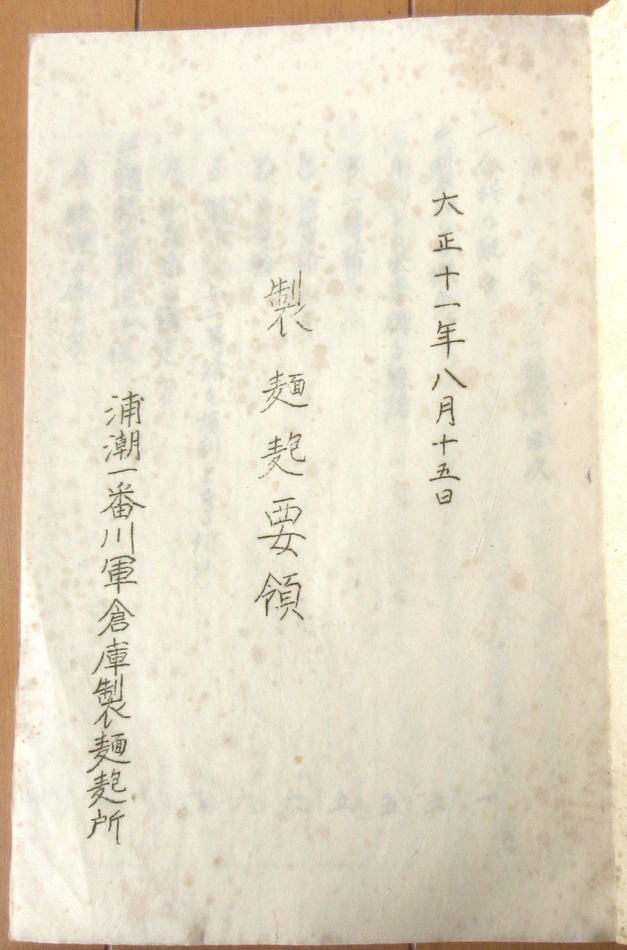 大正十一年八月十五日
製麺麭要領
浦潮一番川軍倉庫製麺麭所